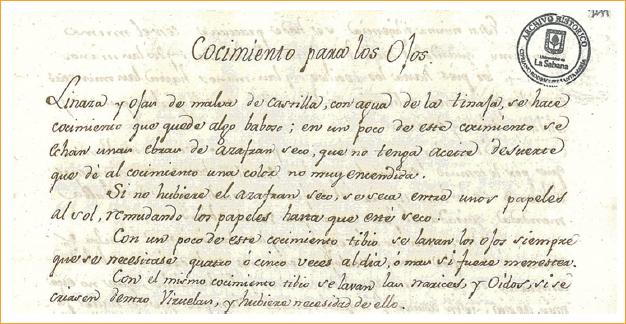 Cocimiento para los Ojos.
ARCHIVO HISTÓRICO
Universidad de
La Sabana
Linaza y ojas de malva de Castilla, con agua de la tinaja, se hace
cocimiento que quede algo baboso; en un poco de este cocimiento se
echan unas ebras de Azafran seco, que no tenga aceite desuerte
que de al cocimiento una color no muy encendida.
Si no hubiere el azafran seco, se seca entre unos papeles
al sol, remudando los papeles hasta que este seco.
Con un poco de este cocimiento tibio se lavan los ojos siempre
que se necesitase quatro ó cinco veces al dia, ó mas si fuere menester.
Con el mismo cocimiento tibio se lavan las narices, y Oidos, si se
criasen dentro Viruelas, y hubiere necesidad de ello.